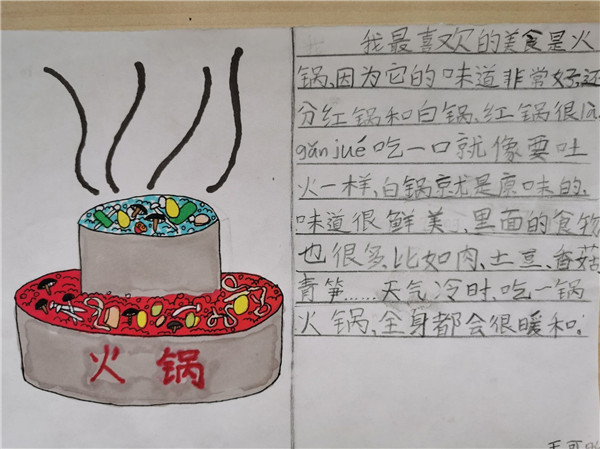 我最喜欢的美食是火
锅,因为它的味道非常好,还
分红锅和白锅,红锅很là,
gǎn jué 吃一口就像要吐
火一样,白锅就是原味的,
味道很鲜美,里面的食物
也很多,比如肉、土豆、香菇,
青笋……天气冷时,吃一锅
火锅,全身都会很暖和。
火锅